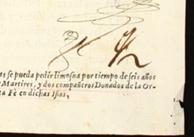 as se pueda pedir limosna por tiempo de seis años
Martires, y dos compañeros Donados de la Or
ta Fè en dichas Islas,